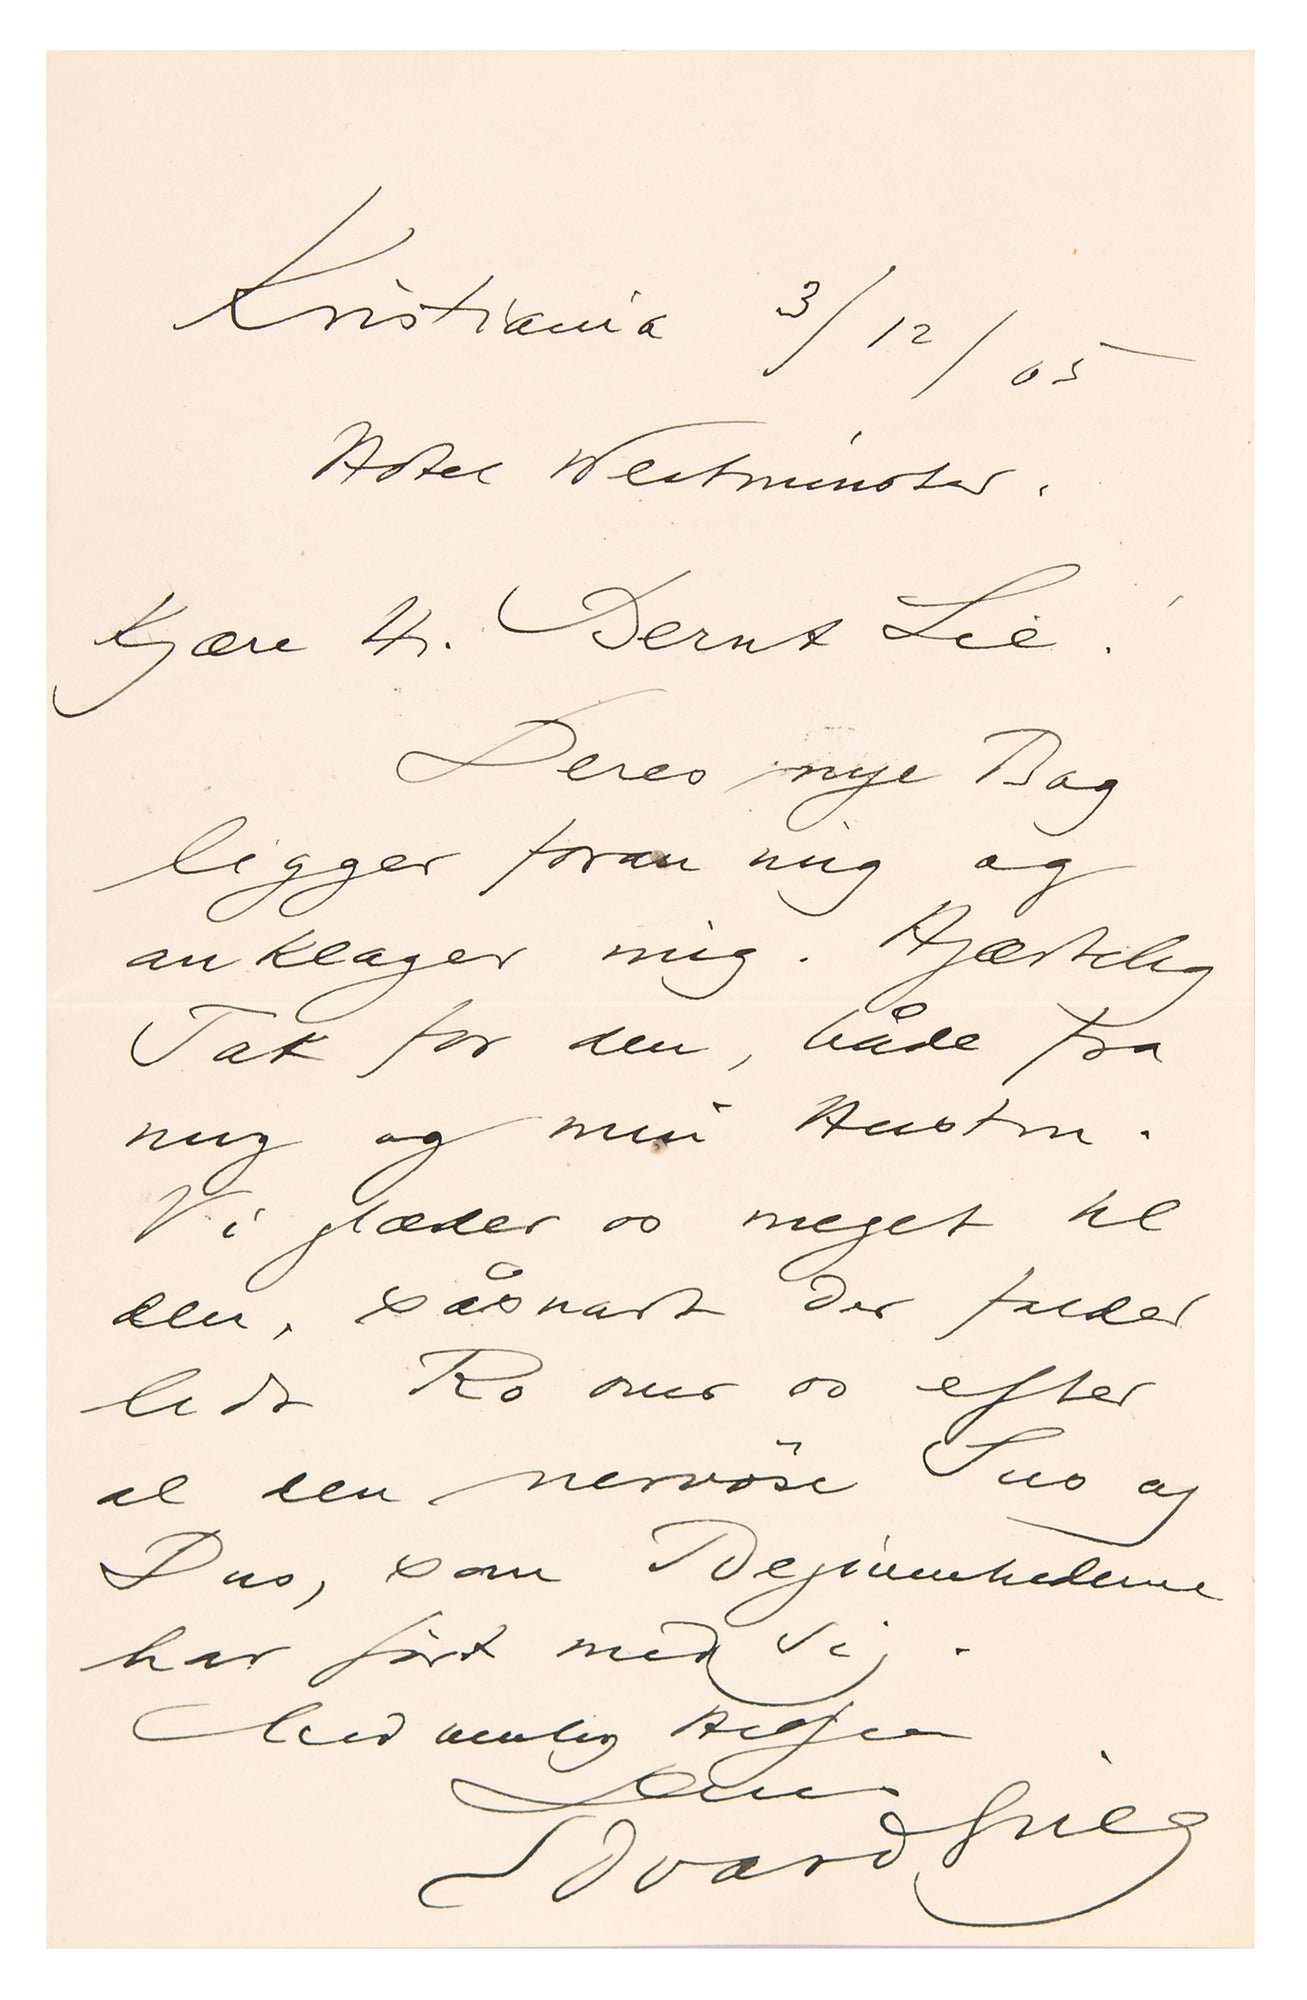 Kristiania 3/12/05
Hotel Westminster.
Kjære Hr. Bernt Lie!
Deres nye Bog
ligger foran mig og
anklager mig. Hjærtelig
Tak for den, både fra
mig og min Hustru.
Vi glæder os meget til
den, såsnart der falder
lidt Ro over os efter
al den nervöse Sus og
Dus, som Begivenhederne
har fört med sig.
Med venlig Hilsen
Deres
Edvard Grieg